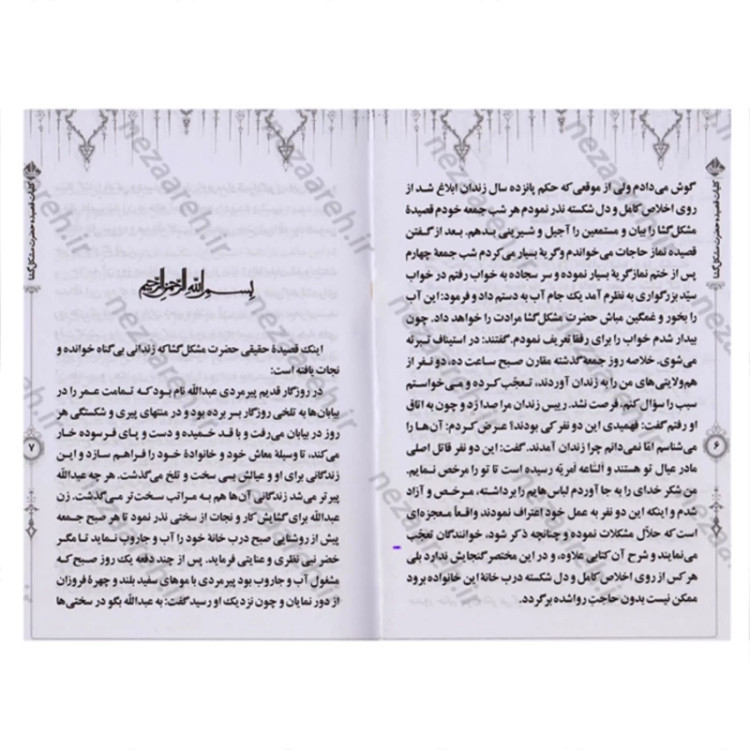 کلیات قصیده حضرت مشکل گشا
گوش می‌دادم ولی از موقعی که حکم پانزده سال زندان ابلاغ شد از
روی اخلاص کامل و دل شکسته نذر نمودم هر شب جمعه خودم قصیدهٔ
مشکل‌گشا را بیان و مستمعین را آجیل و شیرینی بدهم. بعد از گفتن
قصیده نماز حاجات می‌خواندم و گریهٔ بسیار می‌کردم شب جمعهٔ چهارم
پس از ختم نماز گریهٔ بسیار نموده و سر سجاده به خواب رفتم در خواب
سیّد بزرگواری به نظرم آمد یک جام آب به دستم داد و فرمود: این آب
را بخور و غمگین مباش حضرت مشکل‌گشا مرادت را خواهد داد. چون
بیدار شدم خواب را برای رفقا تعریف نمودم. گفتند: در استیناف تبرئه
می‌شوی. خلاصه روز جمعهٔ گذشته مقارن صبح ساعت ده، دو نفر از
هم‌ولایتی‌های من را به زندان آوردند، تعجّب کرده و می‌خواستم
سبب را سؤال کنم، فرصت نشد. رییس زندان مرا صدا زد و چون به اتاق
او رفتم گفت: فهمیدی این دو نفر کی بودند؟ عرض کردم: آن‌ها را
می‌شناسم امّا نمی‌دانم چرا زندان آمدند. گفت: این دو نفر قاتل اصلی
مادر عیال تو هستند و السّاعه امریّه رسیده است تا تو را مرخص نمایم.
من شکر خدای را به جا آوردم لباس‌هایم را برداشته، مرخص و آزاد
شدم و اینکه این دو نفر به عمل خود اعتراف نمودند واقعاً معجزه‌ای
است که حلّال مشکلات نموده و چنانچه ذکر شود، خوانندگان تعجّب
می‌نمایند و شرح آن کتابی علاوه، و در این مختصر گنجایش ندارد بلی
هر کس از روی اخلاص کامل و دل شکسته درب خانهٔ این خانواده برود
ممکن نیست بدون حاجت روا شده برگردد.
۶
بسم الله الرحمن الرحیم
اینک قصیدهٔ حقیقی حضرت مشکل‌گشا که زندانی بی‌گناه خوانده و
نجات یافته است:
در روزگار قدیم پیرمردی عبدالله نام بود که تمامت عمر را در
بیابان‌ها به تلخی روزگار بسر برده بود و در منتهای پیری و شکستگی هر
روز در بیابان می‌رفت و با قد خمیده و دست و پای فرسوده خار
می‌کند، تا وسیلهٔ معاش خود و خانوادهٔ خود را فراهم سازد و این
زندگانی برای او و عیالش بسی سخت و تلخ می‌گذشت. هر چه عبدالله
پیرتر می‌شد زندگانی آن‌ها هم به مراتب سخت‌تر می‌گذشت. زن
عبدالله برای گشایش کار و نجات از سختی نذر نمود تا هر صبح جمعه
پیش از روشنایی صبح درب خانهٔ خود را آب و جاروب نماید تا مگر
خضر نبی نظری و عنایتی فرماید. پس از چند دفعه یک روز صبح که
مشغول آب و جاروب بود پیرمردی با موهای سفید بلند و چهرهٔ فروزان
از دور نمایان و چون نزدیک او رسید گفت: به عبدالله بگو در سختی‌ها
۷
کلیات قصیده حضرت مشکل گشا
nezaareh.ir